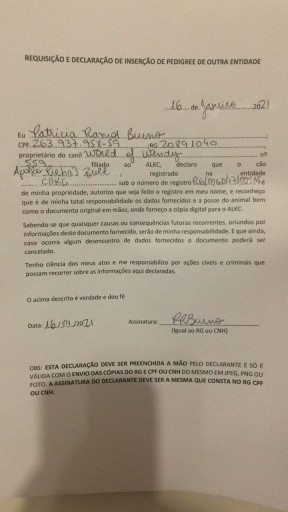 REQUISIÇÃO E DECLARAÇÃO DE INSERÇÃO DE PEDIGREE DE OUTRA ENTIDADE
16 de Janeiro 2021
Eu Patricia Ramos Bueno
CPF 263.937.958-59 RG 20891040
proprietário do canil World of Wendy nº
555 filiado ao ALKC, declaro que o cão
Apollo Bull registrado na entidade
CBKC sob o número de registro
de minha propriedade, autorizo que seja feito o registro em meu nome, e reconheço
que é de minha total responsabilidade os dados fornecidos e a posse do animal bem
como o documento original em mãos, onde forneço a cópia digital para o ALKC.
Sabendo-se que quaisquer causas ou consequências futuras recorrentes, oriundos por
informações deste documento fornecido, serão de minha responsabilidade. E que ainda,
caso ocorra algum desencontro de dados fornecidos o documento poderá ser
cancelado.
Tenho ciência dos meus atos e me responsabilizo por ações cíveis e criminais que
possam recorrer sobre as informações aqui declaradas.
O acima descrito é verdade e dou fé
Data: 16/01/2021 Assinatura: PRBueno
(Igual ao RG ou CNH)
OBS: ESTA DECLARAÇÃO DEVE SER PREENCHIDA A MÃO PELO DECLARANTE E SÓ É
VÁLIDA COM O ENVIO DAS CÓPIAS DO RG E CPF OU CNH DO MESMO EM JPEG, PNG OU
FOTO. A ASSINATURA DO DECLARANTE DEVE SER A MESMA QUE CONSTA NO RG CPF
OU CNH.